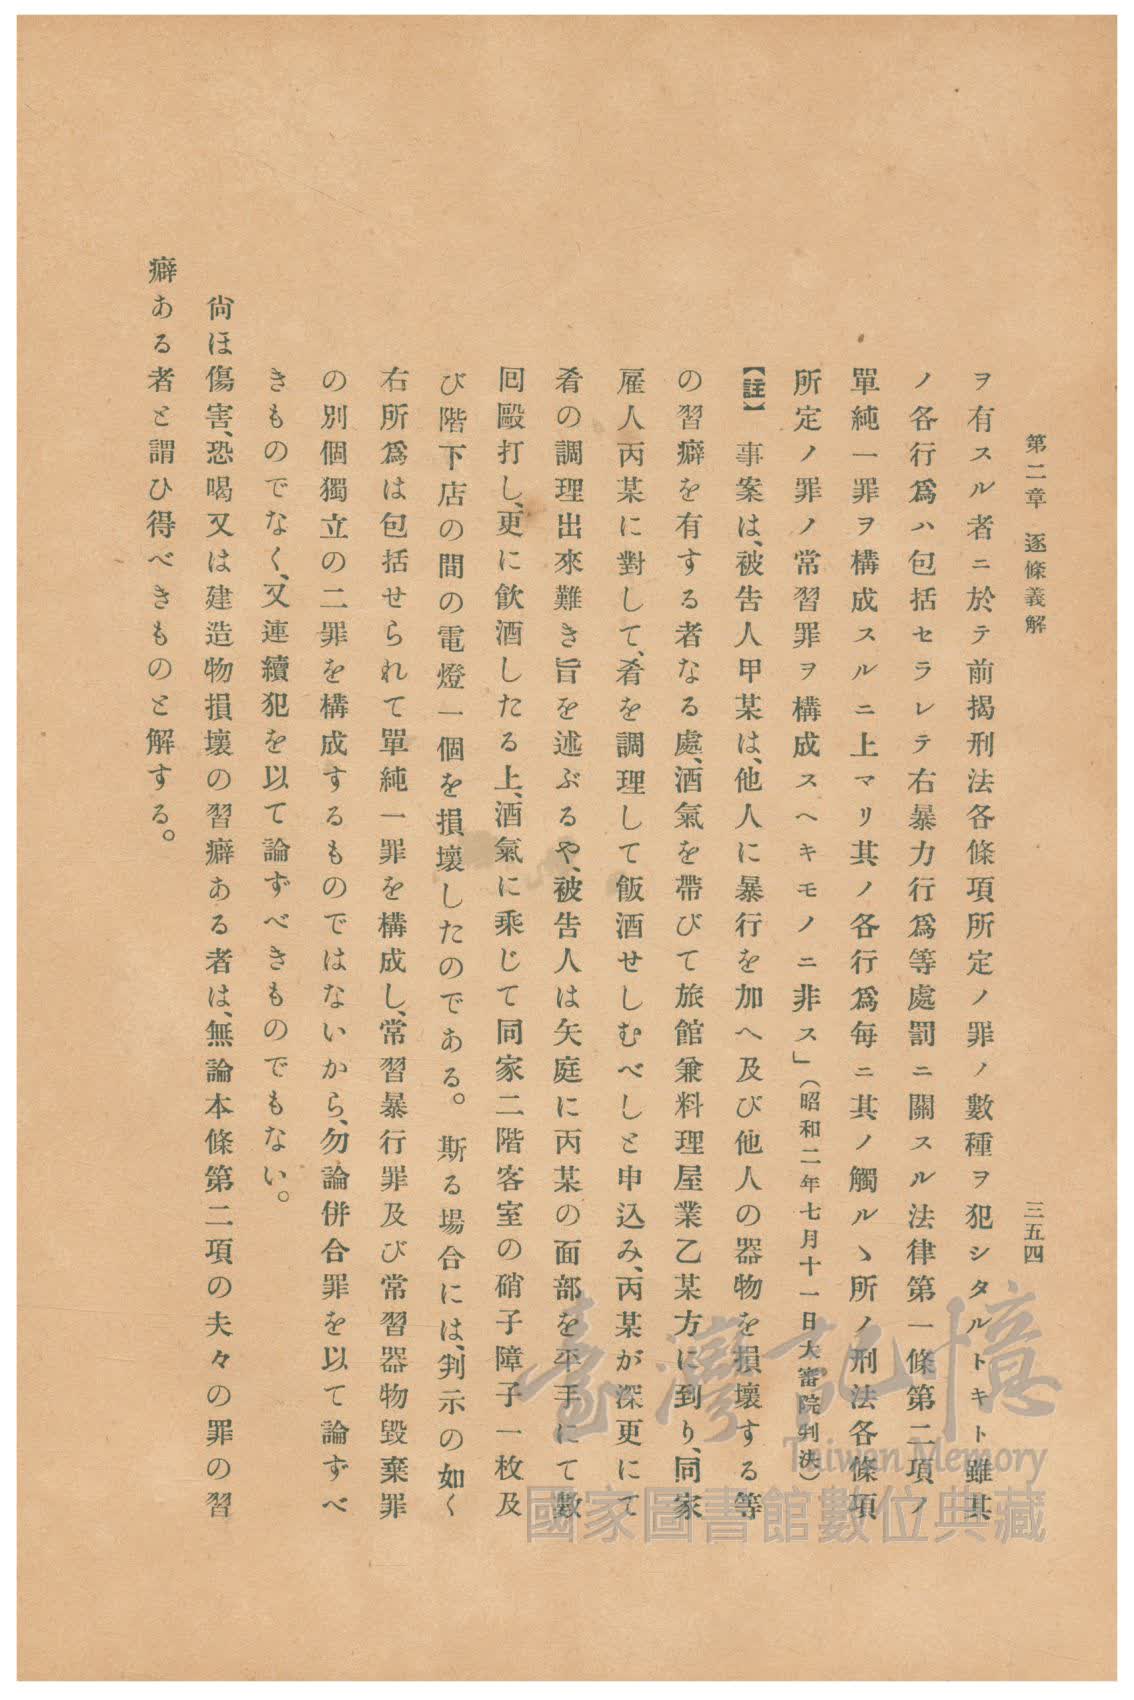 第二章 逐條義解
三五四
ヲ有スル者ニ於テ前揭刑法各條項所定ノ罪ノ數種ヲ犯シタルトキト雖其
ノ各行爲ハ包括セラレテ右暴力行爲等處罰ニ關スル法律第一條第二項ノ
單純一罪ヲ構成スルニ止マリ其ノ各行爲每ニ其ノ觸ルヽ所ノ刑法各條項
所定ノ罪ノ常習罪ヲ構成スヘキモノニ非ス」(昭和二年七月十一日大審院判決)
【註】 事案は、被告人甲某は、他人に暴行を加へ及び他人の器物を損壞する等
の習癖を有する者なる處、酒氣を帶びて旅館兼料理屋業乙某方に到り、同家
雇人丙某に對して、肴を調理して飯酒せしむべしと申込み、丙某が深更にて
肴の調理出來難き旨を述ぶるや、被告人は矢庭に丙某の面部を平手にて數
囘毆打し、更に飮酒したる上、酒氣に乘じて同家二階客室の硝子障子一枚及
び階下店の間の電燈一個を損壞したのである。斯る場合には、判示の如く
右所爲は包括せられて單純一罪を構成し、常習暴行罪及び常習器物毀棄罪
の別個獨立の二罪を構成するものではないから、勿論併合罪を以て論ずべ
きものでなく、又連續犯を以て論ずべきものでもない。
尙ほ傷害、恐喝又は建造物損壞の習癖ある者は、無論本條第二項の夫々の罪の習
癖ある者と謂ひ得べきものと解する。
臺灣記憶
Taiwan Memory
國家圖書館數位典藏